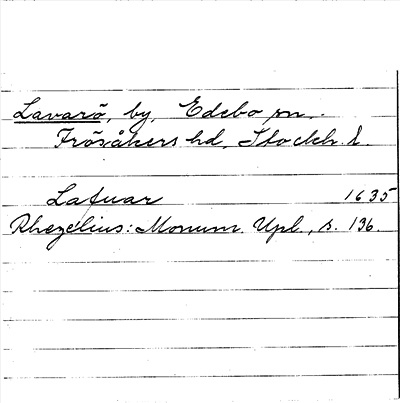 Lavarö, by, Edebo sn.
Frösåkers hd, Stockh. l.
Lafuar 1635
Rhezelius: Monum. Upl., s. 136.